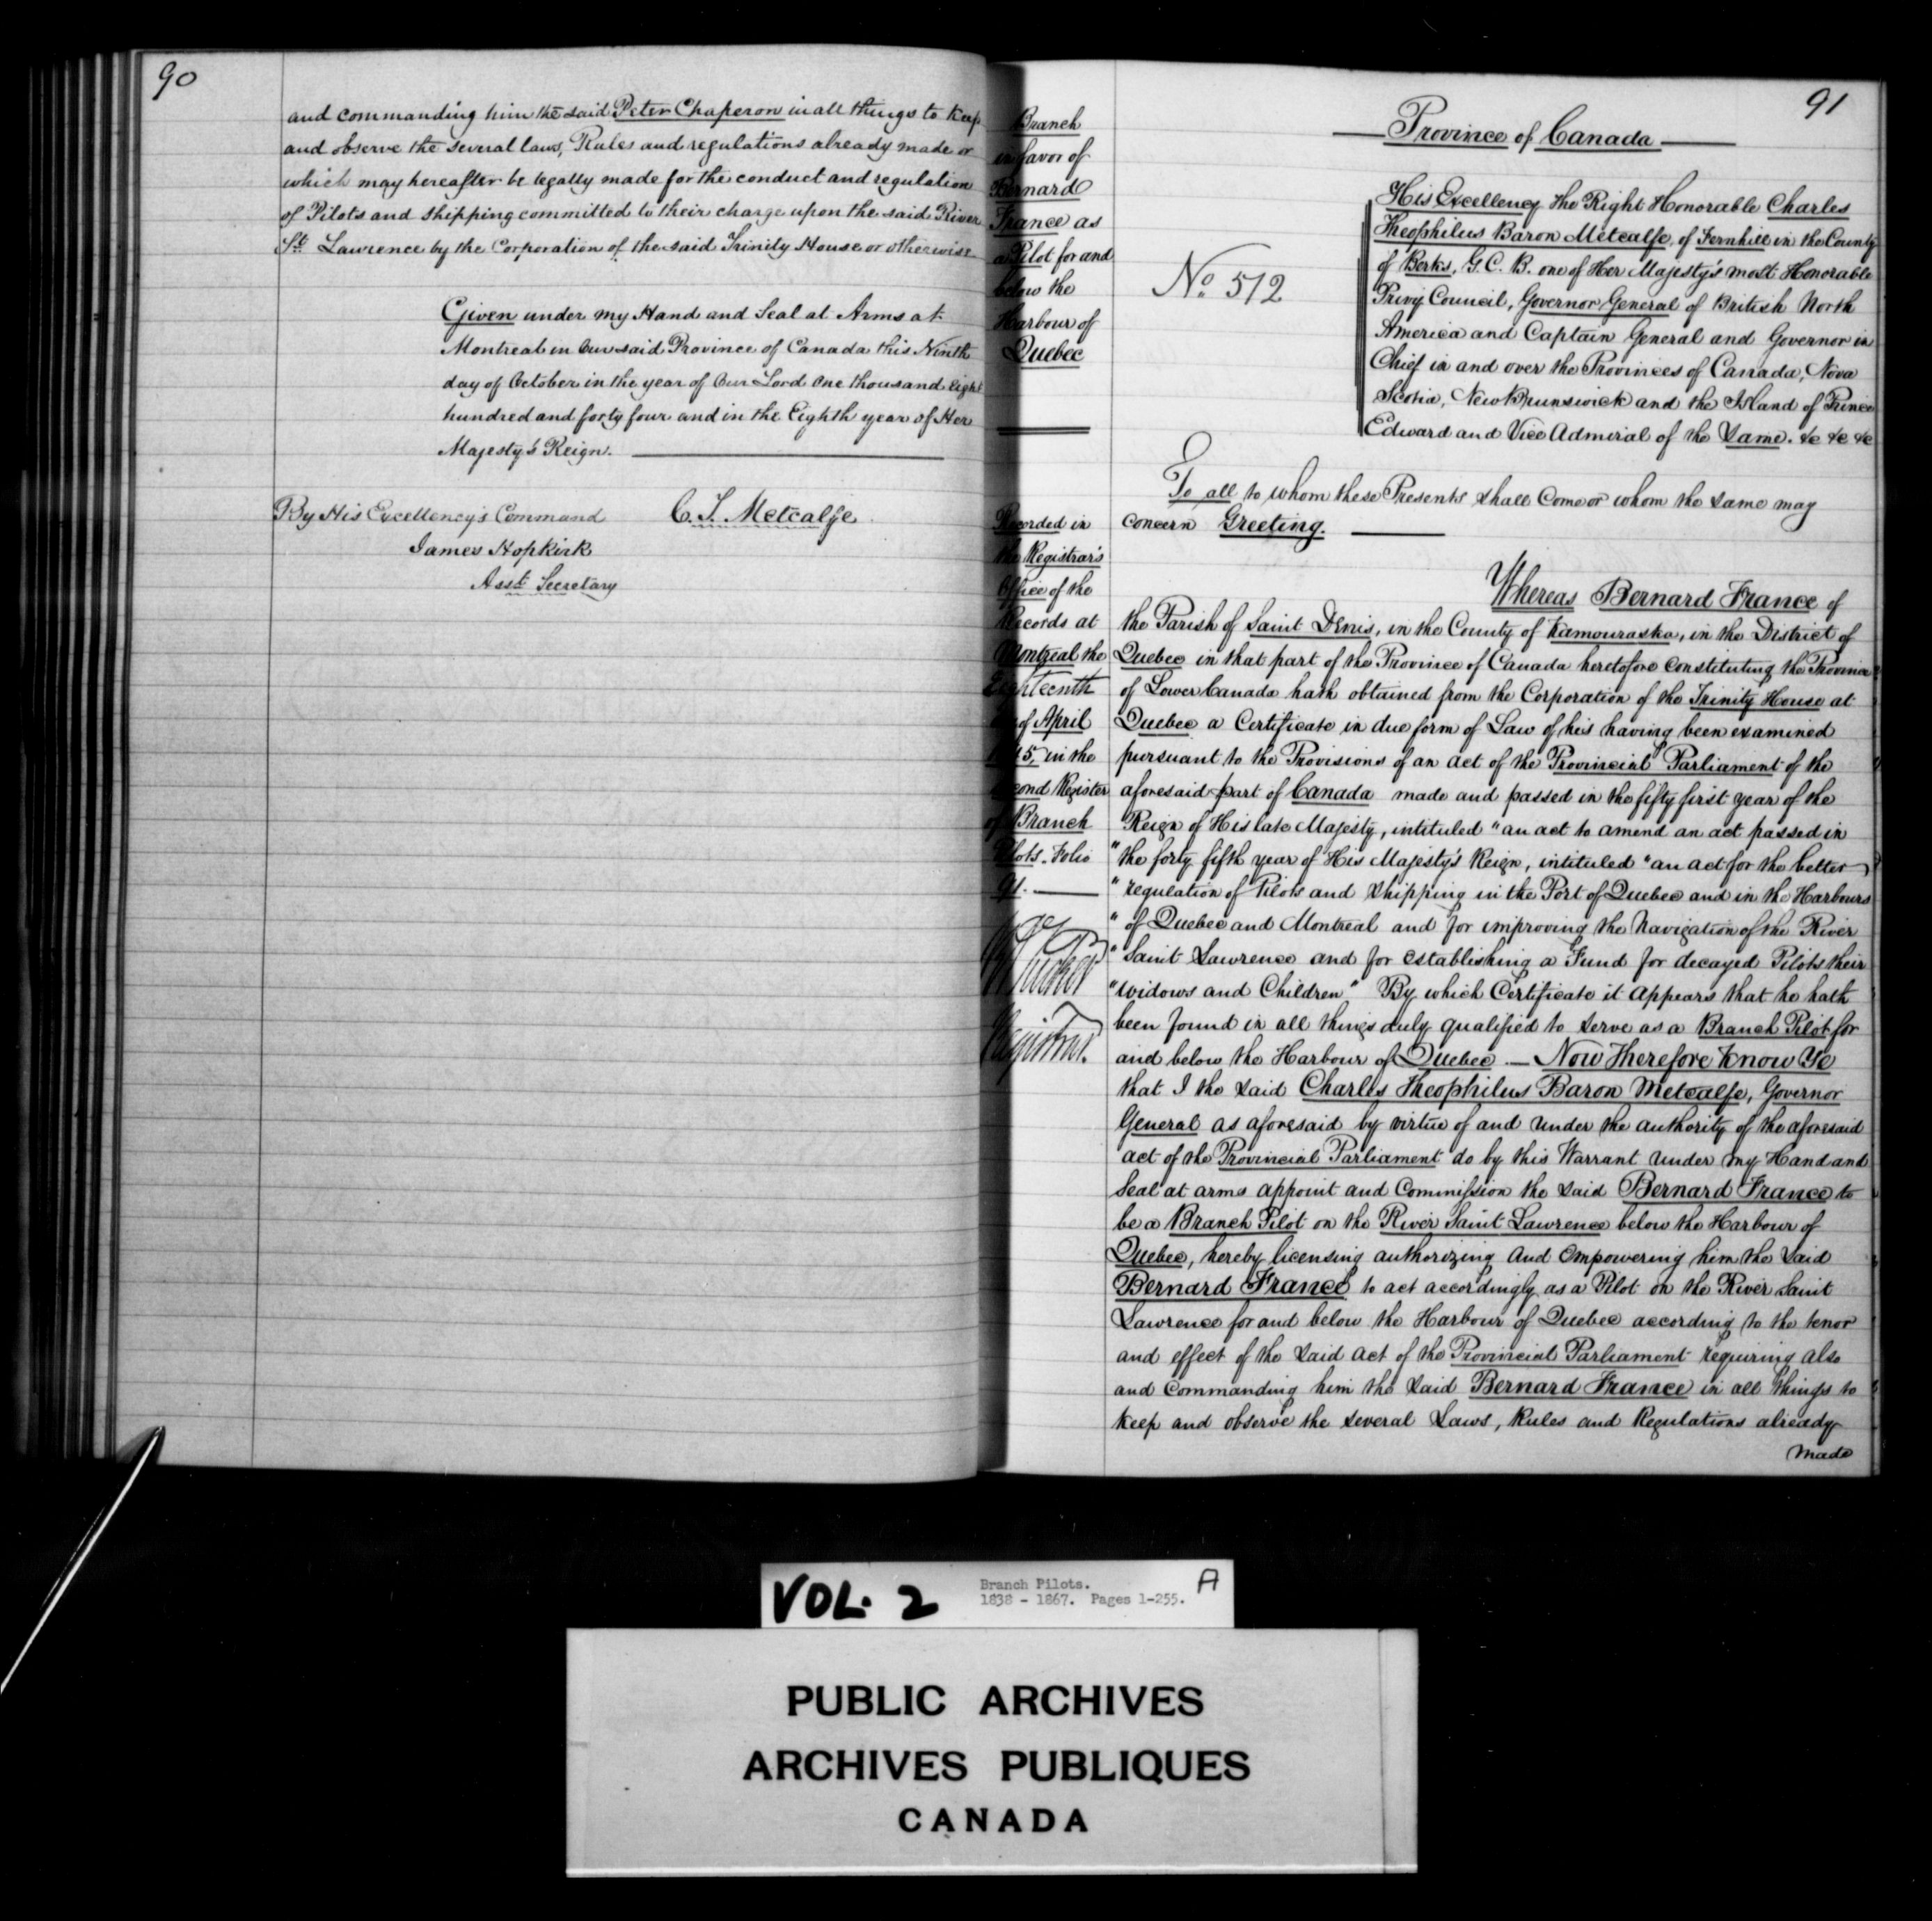 90
and commanding him the said Peter Chaperon in all things to keep
and observe the several laws, Rules and regulations already made or
which may hereafter be legally made for the conduct and regulation
of Pilots and shipping committed to their charge upon the said River
St. Lawrence by the Corporation of the said Trinity House or otherwise.
Given under my Hand and Seal at Arms at
Montreal in Our said Province of Canada this Ninth
day of October in the year of Our Lord One thousand Eight
hundred and forty four and in the Eighth year of Her
Majesty's Reign.
By His Excellency's Command
C. T. Metcalfe
James Hopkirk
Asst. Secretary
91
Branch
in favor of
Bernard
France as
a Pilot for and
below the
Harbour of
Quebec
Recorded in
the Registrar's
Office of the
Records at
Montreal the
Eighteenth
of April
45, in the
Second Register
of Branch
Pilots. Folio
91.
Tucker
Registrar.
Province of Canada
No. 512
His Excellency the Right Honorable Charles
Theophilus Baron Metcalfe, of Fernhill in the County
of Berks, G. C. B. one of Her Majesty's most Honorable
Privy Council, Governor General of British North
America and Captain General and Governor in
Chief in and over the Provinces of Canada, Nova
Scotia, New Brunswick and the Island of Prince
Edward and Vice Admiral of the Same. &c &c &c
To all to whom these Presents shall Come or whom the same may
concern Greeting.
Whereas Bernard France of
the Parish of Saint Denis, in the County of Kamouraska, in the District of
Quebec in that part of the Province of Canada heretofore constituting the Province
of Lower Canada hath obtained from the Corporation of the Trinity House at
Quebec a Certificate in due form of Law of his having been examined
pursuant to the Provisions of an act of the Provincial Parliament of the
aforesaid part of Canada made and passed in the fifty first year of the
Reign of His late Majesty, intituled "an act to amend an act passed in
"the forty fifth year of His Majesty's Reign, intituled "an act for the better
"regulation of Pilots and shipping in the Port of Quebec and in the Harbours
"of Quebec and Montreal and for improving the Navigation of the River
"Saint Lawrence and for establishing a Fund for decayed Pilots their
"widows and Children" By which Certificate it appears that he hath
been found in all things duly qualified to serve as a Branch Pilot for
and below the Harbour of Quebec — Now Therefore Know Ye
that I the said Charles Theophilus Baron Metcalfe, Governor
General as aforesaid by virtue of and under the authority of the aforesaid
act of the Provincial Parliament do by this Warrant under my Hand and
Seal at arms appoint and Commission the said Bernard France to
be a Branch Pilot on the River Saint Lawrence below the Harbour of
Quebec, hereby licensing authorizing and empowering him the said
Bernard France to act accordingly as a Pilot on the River Saint
Lawrence for and below the Harbour of Quebec according to the tenor
and effect of the said act of the Provincial Parliament requiring also
and Commanding him the said Bernard France in all things to
keep and observe the several Laws, Rules and Regulations already
made
VOL. 2
Branch Pilots.
1838 - 1867. Pages 1-255.
A
PUBLIC ARCHIVES
ARCHIVES PUBLIQUES
CANADA